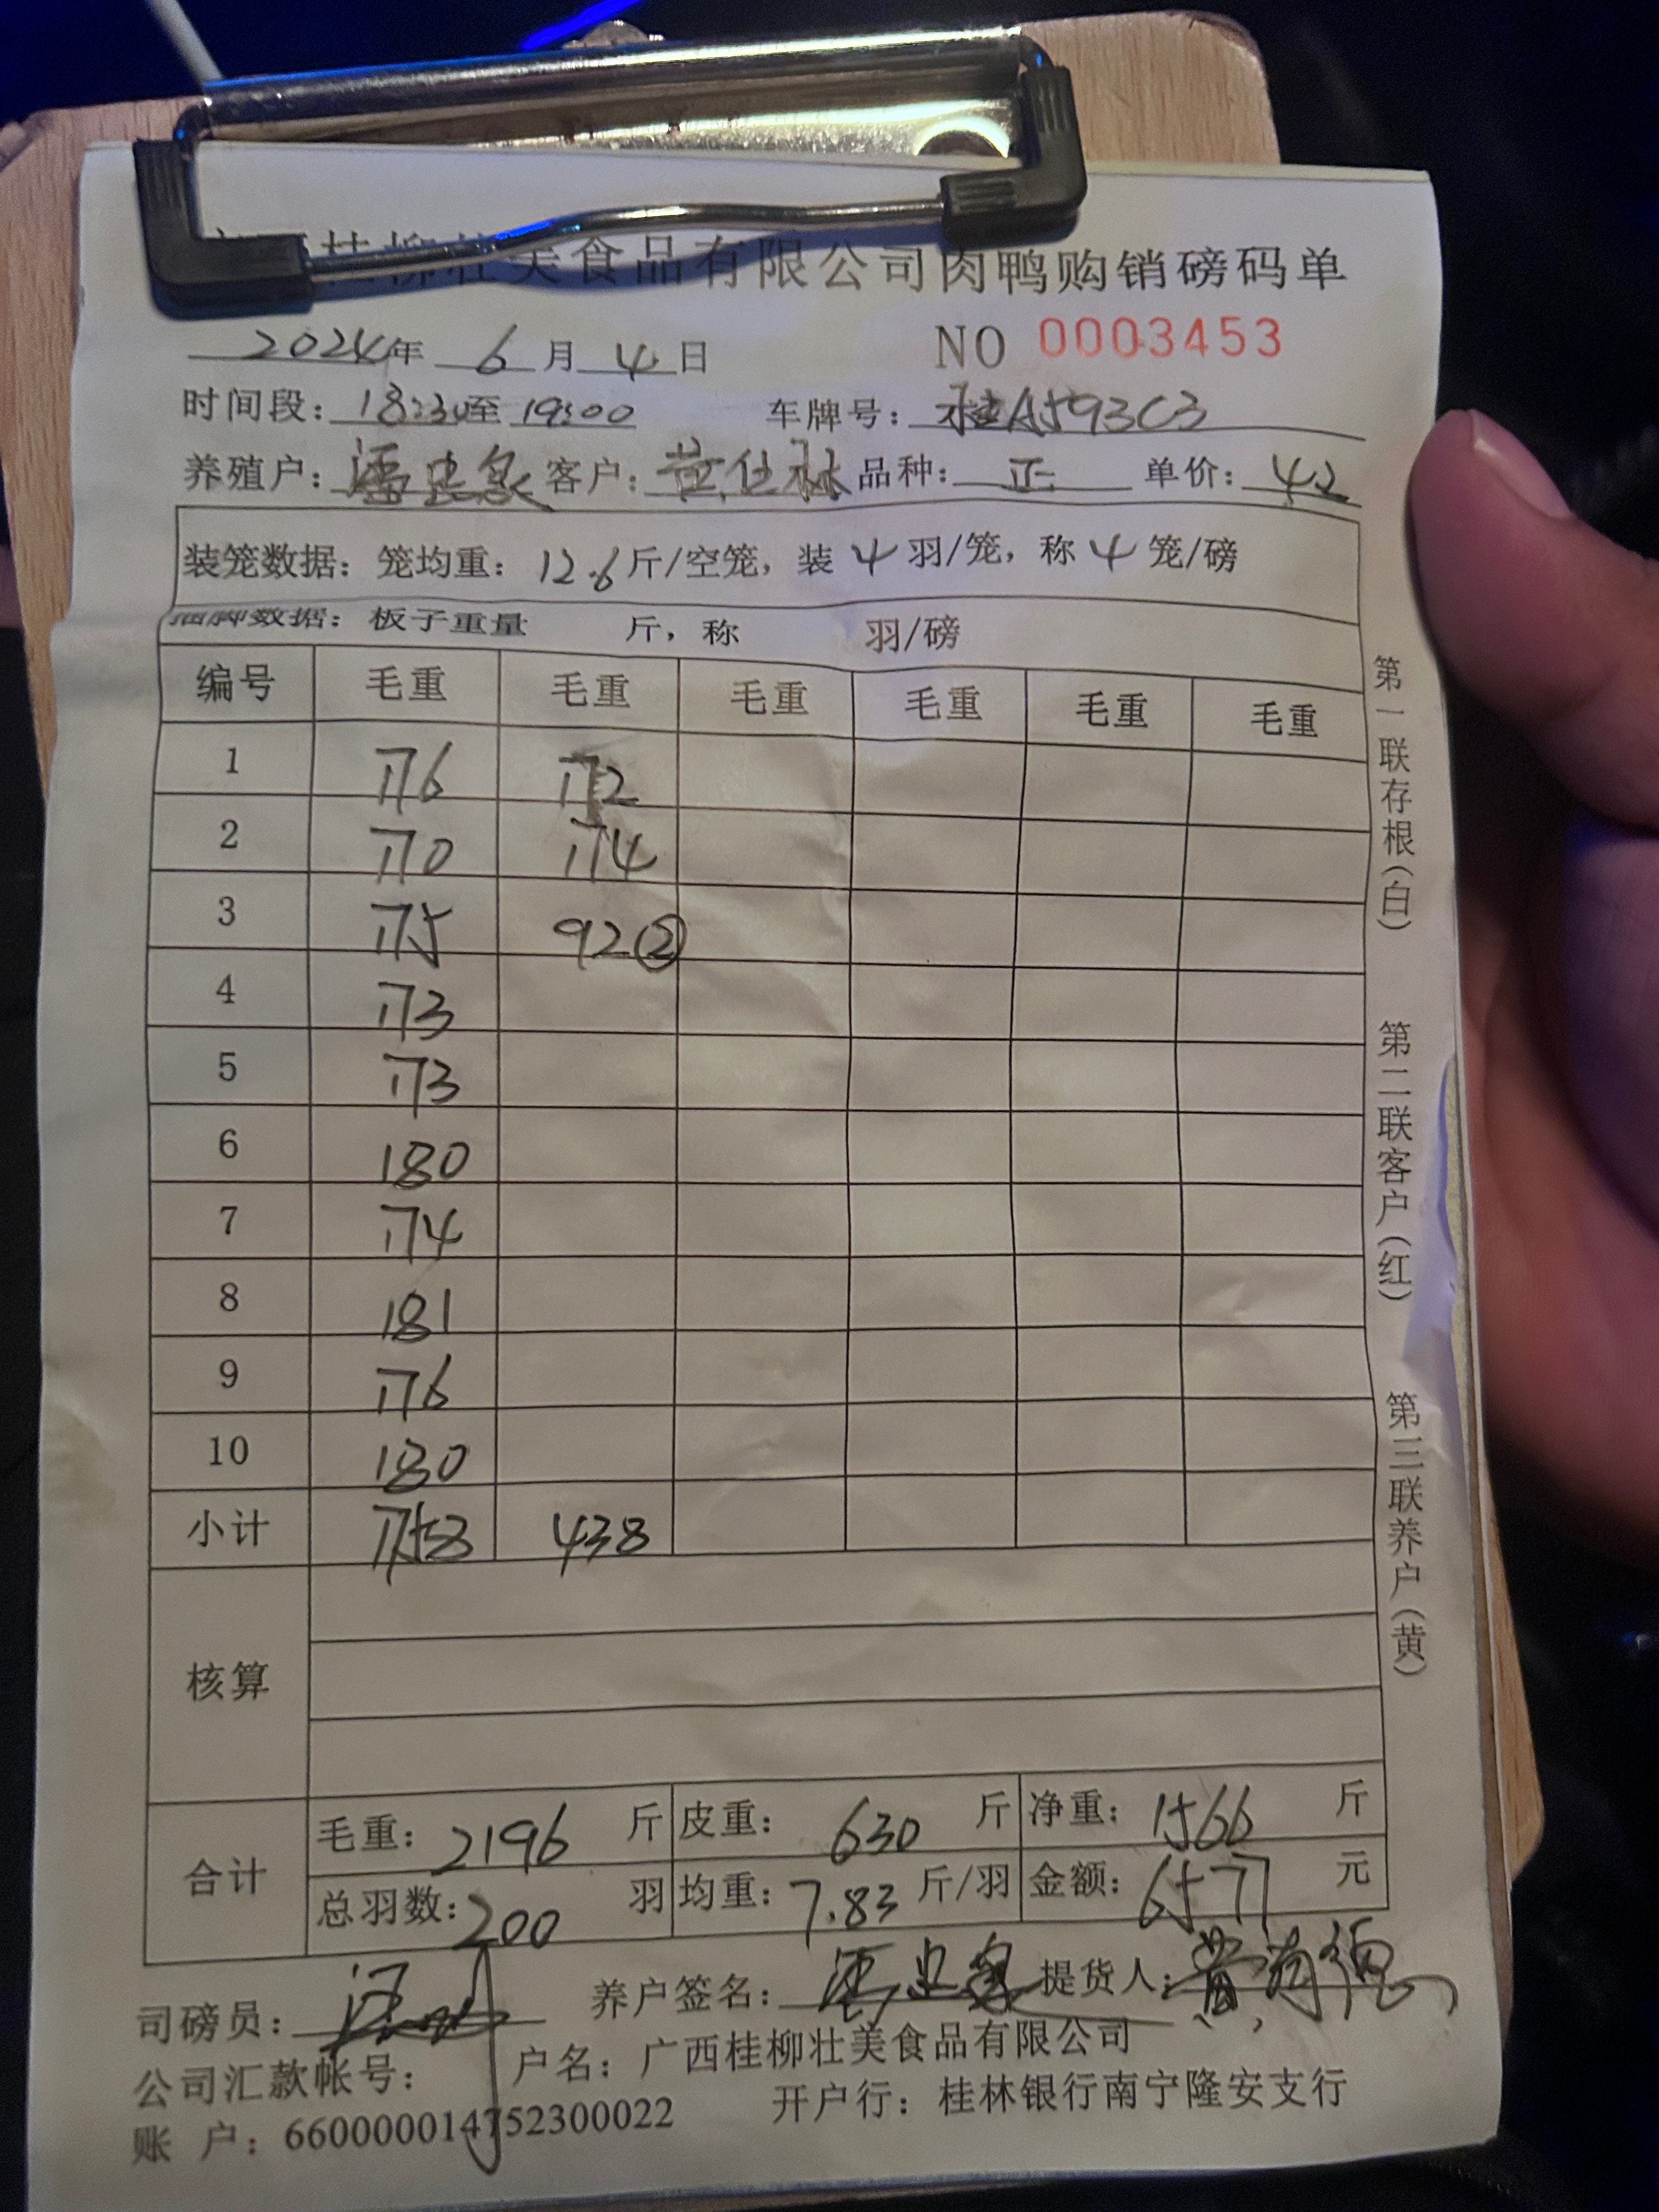 桂柳壮美食品有限公司肉鸭购销磅码单
2024年 6月 4日 NO 0003453
时间段：18:30至 19:00 车牌号：桂A593C3
养殖户： 客户：黄仕林 品种：正 单价：4.2
装笼数据：笼均重：12.6斤/空笼，装 4 羽/笼，称 4 笼/磅
抽脚数据：板子重量 斤，称 羽/磅
编号 毛重 毛重 毛重 毛重 毛重 毛重
1 176 172
2 170 174
3 175 92②
4 173
5 173
6 180
7 174
8 181
9 176
10 180
小计 1758 438
核算
合计
毛重：2196 斤 皮重：630 斤 净重：1566 斤
总羽数：200 羽 均重：7.83 斤/羽 金额：6577 元
司磅员： 养户签名： 提货人：
公司汇款帐号： 户名：广西桂柳壮美食品有限公司
账 户：660000014752300022 开户行：桂林银行南宁隆安支行
第一联存根（白）
第二联客户（红）
第三联养户（黄）